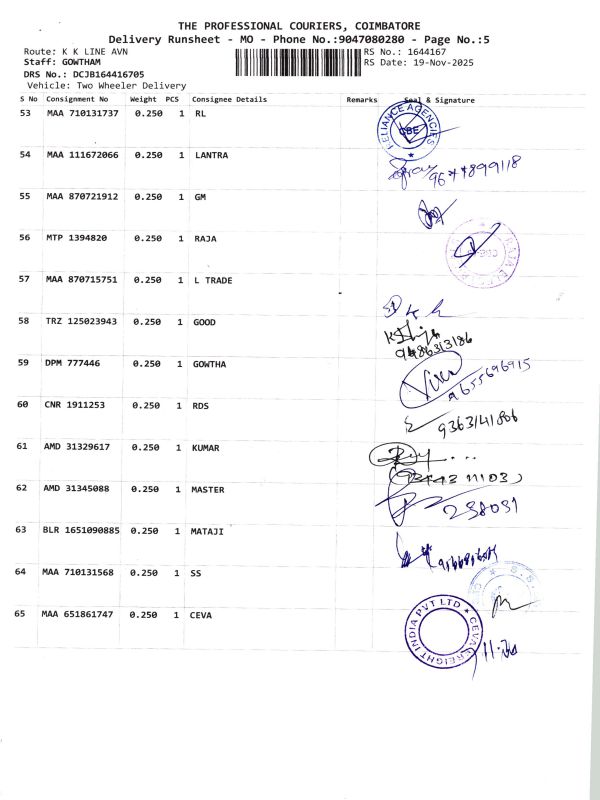 THE PROFESSIONAL COURIERS, COIMBATORE
Delivery Runsheet - MO - Phone No.:9047080280 - Page No.:5
Route: K K LINE AVN
RS No.: 1644167
Staff: GOWTHAM
RS Date: 19-Nov-2025
DRS No.: DCJB164416705
Vehicle: Two Wheeler Delivery
S No Consignment No Weight PCS Consignee Details Remarks Seal & Signature
53 MAA 710131737 0.250 1 RL
RELIANCE AGENCIES CBE
54 MAA 111672066 0.250 1 LANTRA
55 MAA 870721912 0.250 1 GM
56 MTP 1394820 0.250 1 RAJA
57 MAA 870715751 0.250 1 L TRADE
58 TRZ 125023943 0.250 1 GOOD
9486313186
59 DPM 777446 0.250 1 GOWTHA
9655696915
60 CNR 1911253 0.250 1 RDS
9363141806
61 AMD 31329617 0.250 1 KUMAR
62 AMD 31345088 0.250 1 MASTER
238031
63 BLR 1651090885 0.250 1 MATAJI
64 MAA 710131568 0.250 1 SS
65 MAA 651861747 0.250 1 CEVA
CEVA FREIGHT INDIA PVT LTD